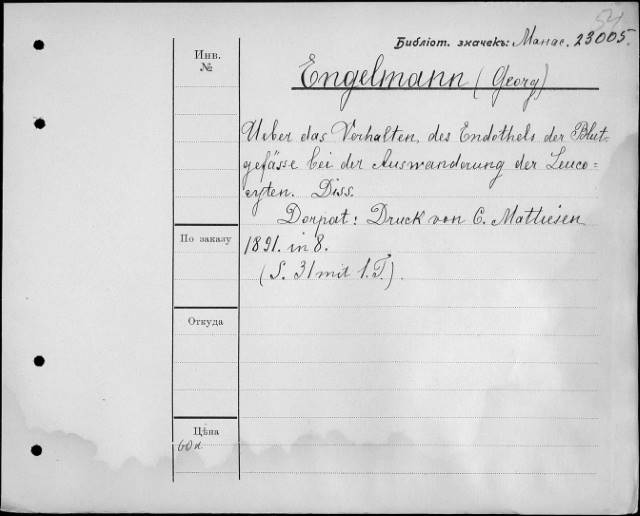 54
Библіот. значекъ: Манас. 23005.
Инв.
№
Engelmann (Georg)
Ueber das Verhalten des Endothels der Blut-
gefässe bei der Auswanderung der Leuco=
cyten. Diss.
Dorpat: Druck von C. Mattiesen
По заказу
1891. in 8.
(S. 31 mit 1. T.).
Откуда
Цѣна
60 к